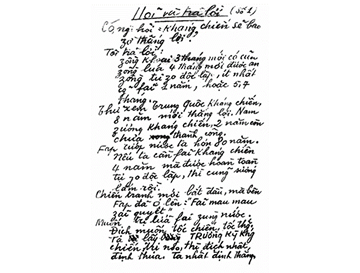 Hỏi và trả lời (Số 1)
Có người hỏi: Kháng chiến sẽ bao
zờ thắng lợi?
Tôi trả lời:
zồng khoai 3 tháng mới có củ
zồng lúa 4 tháng mới được ăn
zồng tự zo độc lập, ít nhất
fải 2 năm, hoặc 5, 4
tháng.
Thử xem Trung Quốc kháng chiến,
8 năm mới thắng lợi. Nam
zương kháng chiến, 2 năm còn
chưa thành công.
Fáp cướp nước ta hơn 80 năm.
Nếu ta cần fải kháng chiến
4 năm mà được hoàn toàn
tự zo độc lập, thì cũng sướng
lắm rồi.
Chiến tranh mới bắt đầu, mà bên
Fáp đã ó lên: "Fải mau mau
zải quyết"
Muốn fải zùng mưu.
Địch muốn tốc chiến, tốc thắng.
Ta lấy TRƯỜNG KỲ KHÁNG
chiến trị nó, thì địch nhất
định thua. Ta nhất định thắng.